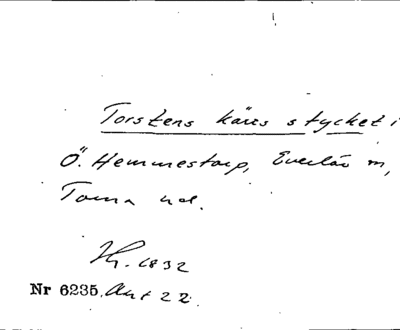 Torstens kärrs stycket i
Ö. Hemmestorp, Everlöv m,
Torna hd.
1832
Nr 6235. Akt 22.